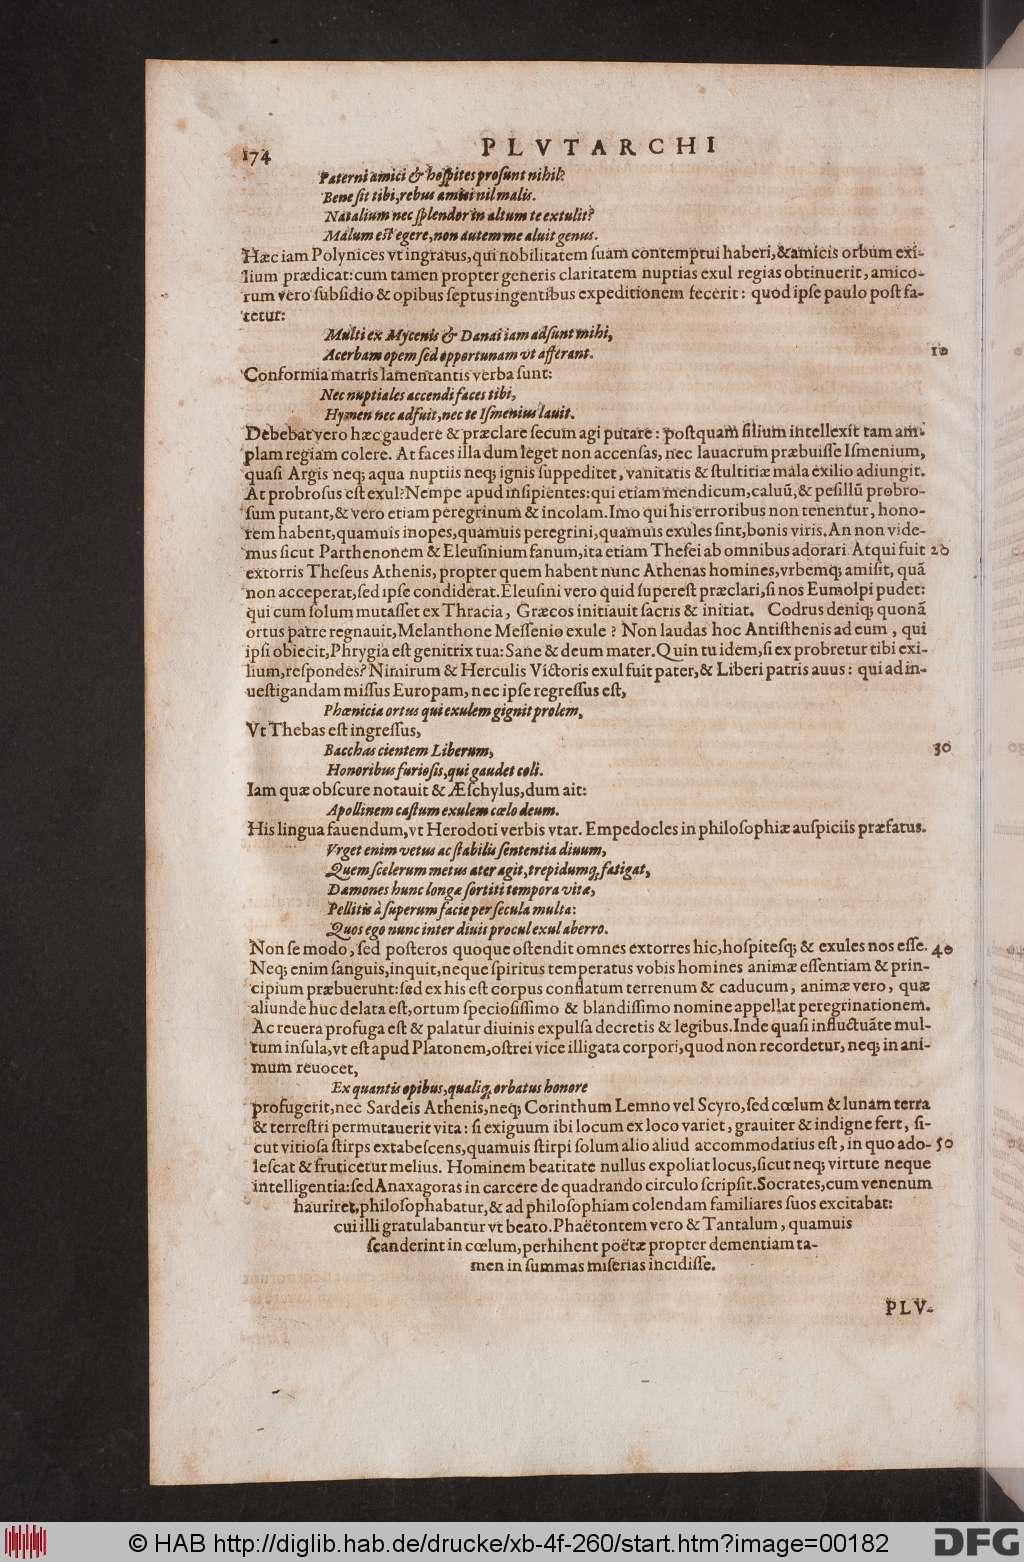 174 PLVTARCHI
Paterni amici & hoſpites proſunt nihil?
Bene ſit tibi, rebus amici nil malis.
Natalium nec ſplendor in altum te extulit?
Malum eſt egere, non autem me aluit genus.
Hæc iam Polynices vt ingratus, qui nobilitatem ſuam contemptui haberi, & amicis orbum exi-
lium prædicat: cum tamen propter generis claritatem nuptias exul regias obtinuerit, amico-
rum vero ſubſidio & opibus ſeptus ingentibus expeditionem fecerit: quod ipſe paulo poſt fa-
tetur:
Multi ex Mycenis & Danai iam adſunt mihi,
Acerbam opem ſed opportunam vt afferant. 10
Conformia matris lamentantis verba ſunt:
Nec nuptiales accendi faces tibi,
Hymen nec adfuit, nec te Iſmenius lauit.
Debebat vero hæc gaudere & præclare ſecum agi putare: poſtquam filium intellexit tam am-
plam regiam colere. At faces illa dum leget non accenſas, nec lauacrum præbuiſſe Iſmenium,
quaſi Argis neq; aqua nuptiis neq; ignis ſuppeditet, vanitatis & ſtultitiæ mala exilio adiungit.
At probroſus eſt exul? Nempe apud inſipientes: qui etiam mendicum, caluũ, & peſillũ probro-
ſum putant, & vero etiam peregrinum & incolam. Imo qui his erroribus non tenentur, hono-
rem habent, quamuis inopes, quamuis peregrini, quamuis exules ſint, bonis viris. An non vide-
mus ſicut Parthenonem & Eleuſinium fanum, ita etiam Theſei ab omnibus adorari Atqui fuit 20
extorris Theſeus Athenis, propter quem habent nunc Athenas homines, vrbemq; amiſit, quã
non acceperat, ſed ipſe condiderat. Eleuſini vero quid ſupereſt præclari, ſi nos Eumolpi pudet:
qui cum ſolum mutaſſet ex Thracia, Græcos initiauit ſacris & initiat. Codrus deniq; quonã
ortus patre regnauit, Melanthone Meſſenio exule? Non laudas hoc Antiſthenis ad eum, qui
ipſi obiecit, Phrygia eſt genitrix tua: Sane & deum mater. Quin tu idem, ſi ex probretur tibi exi-
lium, reſpondes? Nimirum & Herculis Victoris exul fuit pater, & Liberi patris auus: qui ad in-
ueſtigandam miſſus Europam, nec ipſe regreſſus eſt,
Phœnicia ortus qui exulem gignit prolem,
Vt Thebas eſt ingreſſus,
Bacchas cientem Liberum, 30
Honoribus furioſis, qui gaudet coli.
Iam quæ obſcure notauit & Æſchylus, dum ait:
Apollinem caſtum exulem cœlo deum.
His lingua fauendum, vt Herodoti verbis vtar. Empedocles in philoſophiæ auſpiciis præfatus.
Vrget enim vetus ac ſtabilis ſententia diuum,
Quem ſcelerum metus ater agit, trepidumq; fatigat,
Dæmones hunc longæ ſortiti tempora vitæ,
Pellitis à ſuperum facie per ſecula multa:
Quos ego nunc inter diuis procul exul aberro.
Non ſe modo, ſed poſteros quoque oſtendit omnes extorres hic, hoſpiteſq; & exules nos eſſe. 40
Neq; enim ſanguis, inquit, neque ſpiritus temperatus vobis homines animæ eſſentiam & prin-
cipium præbuerunt: ſed ex his eſt corpus conflatum terrenum & caducum, animæ vero, quæ
aliunde huc delata eſt, ortum ſpecioſiſſimo & blandiſſimo nomine appellat peregrinationem.
Ac reuera profuga eſt & palatur diuinis expulſa decretis & legibus. Inde quaſi influctuãte mul-
tum inſula, vt eſt apud Platonem, oſtrei vice illigata corpori, quod non recordetur, neq; in ani-
mum reuocet,
Ex quantis opibus, qualiq; orbatus honore
profugerit, nec Sardeis Athenis, neq; Corinthum Lemno vel Scyro, ſed cœlum & lunam terra
& terreſtri permutauerit vita: ſi exiguum ibi locum ex loco variet, grauiter & indigne fert, ſi-
cut vitioſa ſtirps extabeſcens, quamuis ſtirpi ſolum alio aliud accommodatius eſt, in quo ado- 50
leſcat & fruticetur melius. Hominem beatitate nullus expoliat locus, ſicut neq; virtute neque
intelligentia: ſed Anaxagoras in carcere de quadrando circulo ſcripſit. Socrates, cum venenum
hauriret, philoſophabatur, & ad philoſophiam colendam familiares ſuos excitabat:
cui illi gratulabantur vt beato. Phaëtontem vero & Tantalum, quamuis
ſcanderint in cœlum, perhihent poëtæ propter dementiam ta-
men in ſummas miſerias incidiſſe.
PLV-
© HAB http://diglib.hab.de/drucke/xb-4f-260/start.htm?image=00182 DFG